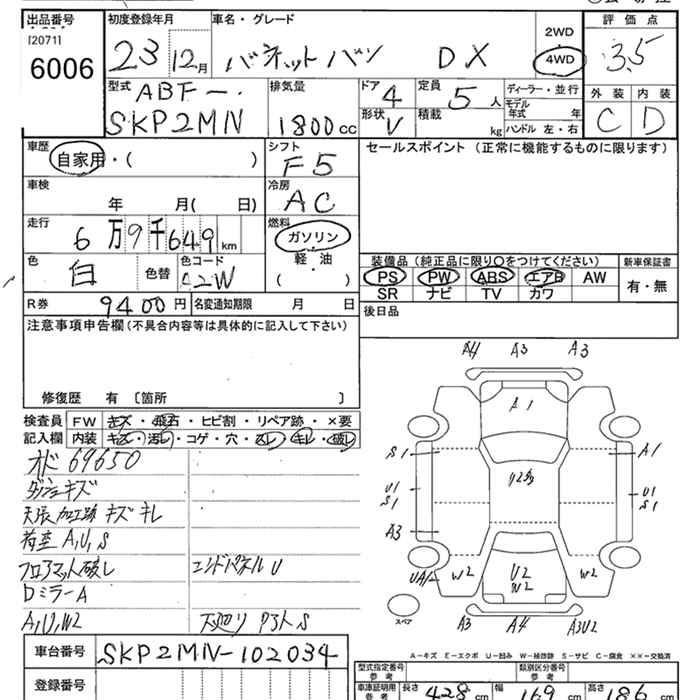 出品番号 初度登録年月 車名・グレード 2WD 評価点
I20711
6006 23 12月 バネットバン DX 4WD 3.5
型式 ABF- 排気量 ドア 4 定員 5人 ディーラー・並行 外装 内装
SKP2MN 1800cc 形状 V 積載 kg モデル年式 年 C D
ハンドル 左・右
車歴 自家用・( ) シフト F5 セールスポイント (正常に機能するものに限ります)
車検 年 月( 日) 冷房 AC
走行 6万9千649km 燃料 ガソリン
軽油
( )
色 白 色替 色コード 装備品 (純正品に限り○をつけてください) 新車保証書
PS PW ABS エアB AW 有・無
SR ナビ TV カワ
R券 9400円 名変通知期限 月 日 後日品
注意事項申告欄(不具合内容等は具体的に記入して下さい)
修復歴 有 [箇所 ]
検査員 FW キズ・飛石・ヒビ割・リペア跡・×要
記入欄 内装 キズ・汚レ・コゲ・穴・スレ・キレ・破レ
オド 69650
ダッシュキズ
天張加工跡 キズ キレ
荷室 A,U,S
フロアマット破レ エンドパネルU
DミラーA
A,U,W2 下廻り S
A4 A3 A3
A1
S1 A1
U1 S1 U1 S1
A3
W2 U2 W2 W2
スペア A3 A4 A3U2
A-キズ E-エクボ U-凹み W-補修跡 S-サビ C-腐食 ××-交換済
車台番号 SKP2MN-102034
登録番号
型式指定番号 参考 類別区分番号 参考
車庫証明用 参考 長さ 428cm 幅 169cm 高さ 186cm